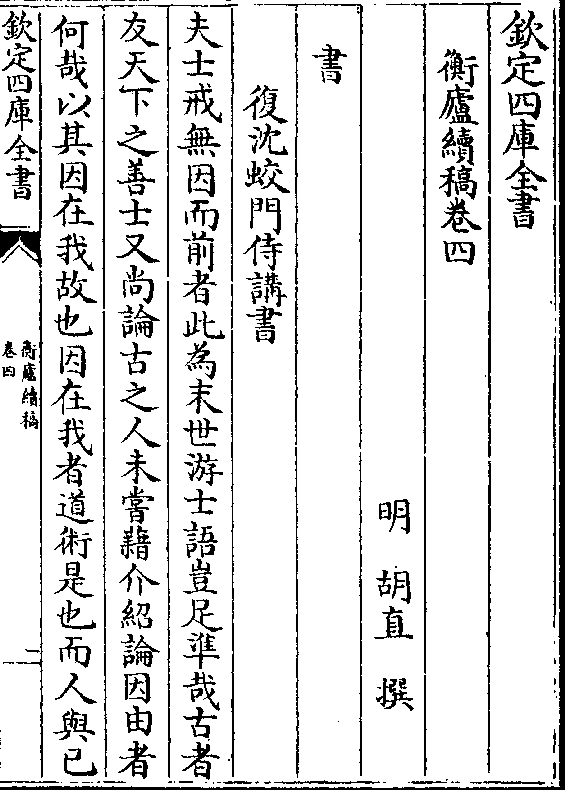 欽定四庫全書
衡廬續稿卷四
明 胡直 撰
書
復沈蛟門侍講書
夫士戒無因而前者此為末世游士語豈足準哉古者
友天下之善士又尚論古之人未嘗藉介紹論因由者
何哉以其因在我故也因在我者道術是也而人與已
欽定四庫全書
衡廬續稿
卷四
一